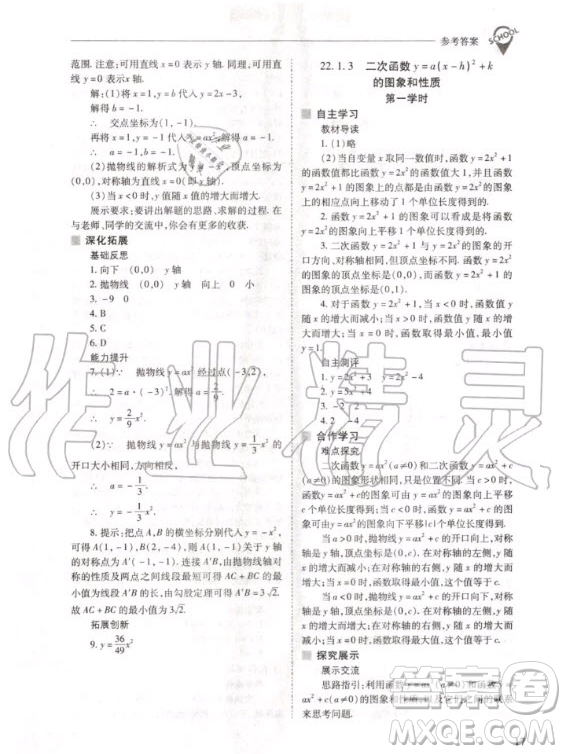 参考答案
SCHOOL
范围. 注意;可用直线 x=0 表示 y 轴. 同理,可用直
线 y=0 表示 x 轴.
解:(1)将 x=1,y=b 代入 y=2x-3,
解得 b=-1.
∴ 交点坐标为(1,-1).
再将 x=1,y=-1 代入 y=ax²,
∴ a=-1,b=-1.
(2)抛物线的解析式为 y=-x²,顶点坐标为
(0,0),对称轴为直线 x=0(即 y 轴).
(3)当 x<0 时,y 随 x 值的增大而增大.
展示要求:要讲出解题的思路.求解的过程.在
与老师、同学的交流中,你会有更多的收获.
深化拓展
基础反思
1. 向下 (0,0) y 轴
2. 抛物线 (0,0) y 轴 向上 0 小
3. -9 0
4. B
5. C
6. D
能力提升
7. (1)∵ 抛物线 y=ax² 经过点(-3,2),
∴ 2=a·(-3)². ∴ a=2/9.
∴ y=2/9x².
(2)∵ 抛物线 y=ax² 与抛物线 y=-1/3x² 的
开口大小相同,方向相同,
∴ a=-1/3.
∴ y=-1/3x².
8. 提示:把点 A,B 的横坐标分别代入 y=-x²,
可得 A(1,-1),B(2,-4),则 A(1,-1)关于 y 轴
的对称点为 A′(-1,-1). 连接 A′B,由抛物线对
称的性质及两点之间线段最短可得 AC+BC 的最
小值为线段 A′B 的长,由勾股定理可得 A′B=3√2.
故 AC+BC 的最小值为 3√2.
拓展创新
9. y=36/49x²
22.1.3 二次函数 y=a(x-h)²+k
的图象和性质
第一学时
自主学习
教材导读
1. (1)略
(2)当自变量 x 取同一数值时,函数 y=2x²+1
的函数值都比函数 y=2x² 的函数值大 1,函数
y=2x²+1 的图象上的点都是由函数 y=2x² 的图象上
的相应点向上移动了 1 个单位长度得到的.
2. 函数 y=2x²+1 的图象可以看成是将函数
y=2x² 的图象向上平移 1 个单位长度得到的.
3. 二次函数 y=2x²+1 与函数 y=2x² 的图象的开口
方向、对称轴相同,但顶点坐标不同,函数 y=2x²+1
的图象的顶点坐标是(0,1),函数 y=2x² 的图象的
顶点坐标是(0,0).
4. 对于函数 y=2x²+1,当 x<0 时,函数值 y 随
x 的增大而减小;当 x>0 时,函数值 y 随 x 的增大
而增大;当 x=0 时,函数取得最小值,最小值
y=1.
自主测评
1. y=2x²+3 y=2x²-4
2. y=5x²+2
3. y=2x²-4
合作学习
难点探究
二次函数 y=ax²(a≠0)和二次函数 y=ax²+c
(a≠0)的图象形状相同,只是位置不同. 当 c>0 时,
y=ax²+c 的图象可以由 y=ax² 的图象向上平移
c 个单位长度得到;当 c<0 时,y=ax²+c 的图象可
以由 y=ax² 的图象向下平移|c|个单位长度得到.
当 a>0 时,抛物线 y=ax²+c 的开口向上,对
称轴是 y 轴,顶点坐标是(0,c). 在对称轴的左侧,y 随
x 的增大而减小;在对称轴的右侧,y 随 x 的增大而增大.
当 a<0 时,抛物线 y=ax²+c 的开口向下,对
称轴是 y 轴,顶点坐标是(0,c). 在对称轴的左侧,y 随
x 的增大而增大;在对称轴的右侧,y 随 x 的增大而减小.
探究展示
展示交流
思路指引:利用函数 y=ax²(a≠0)和函数 y=
ax²+c(a≠0)的图象,以及它们之间的联系
来思考问题.
作业精灵
答案圈